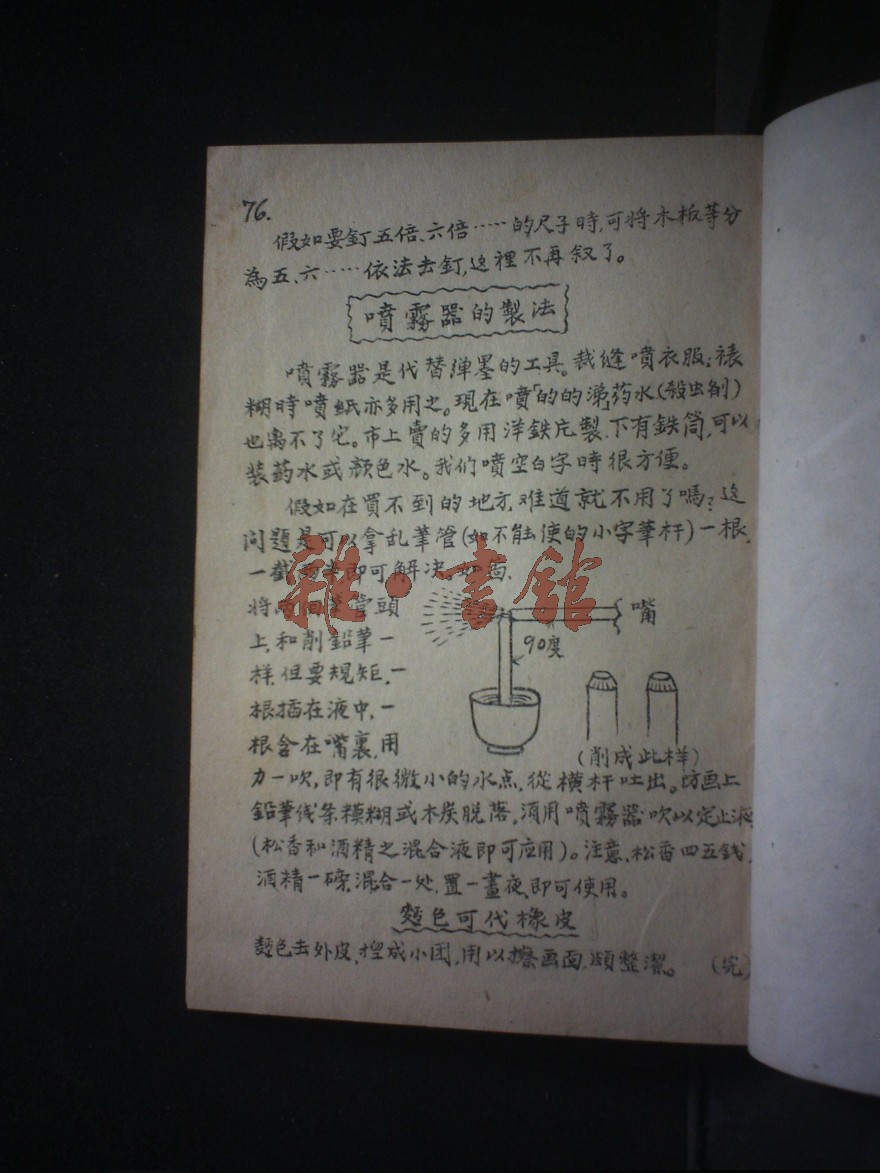 76.
假如要釘五倍、六倍……的尺子時,可將木板等分
為五、六……依法去釘,这裡不再叙了。
噴霧器的製法
噴霧器是代替弹墨的工具。裁縫噴衣服;裱
糊時噴紙亦多用之。現在噴「的的涕」药水(殺虫剂)
也离不了它。市上賣的多用洋鉄片製,下有鉄筒,可以
装药水或颜色水。我们噴空白字時很方便。
假如在買不到的地方,难道就不用了嗎?这
问題是可以拿乱筆管(如不能使的小字筆杆)一根,
一截两半即可解决。如啚.
将两個筆管頭
上,和削鉛筆一
样,但要規矩,一
根插在液中,一
根含在嘴裏,用
嘴
90度
(削成此样)
力一吹,即有很微小的水点,從横杆吐出。
鉛筆线条糢糊或木炭脱落,須用噴霧器吹以定上液
(松香和酒精之混合液即可应用)。注意,松香四五錢,
酒精一磅,混合一处,置一晝夜,即可使用。
麵包可代橡皮
麵包去外皮,揑成小团,用以擦画面,頗整潔。 (完)
雜·書館